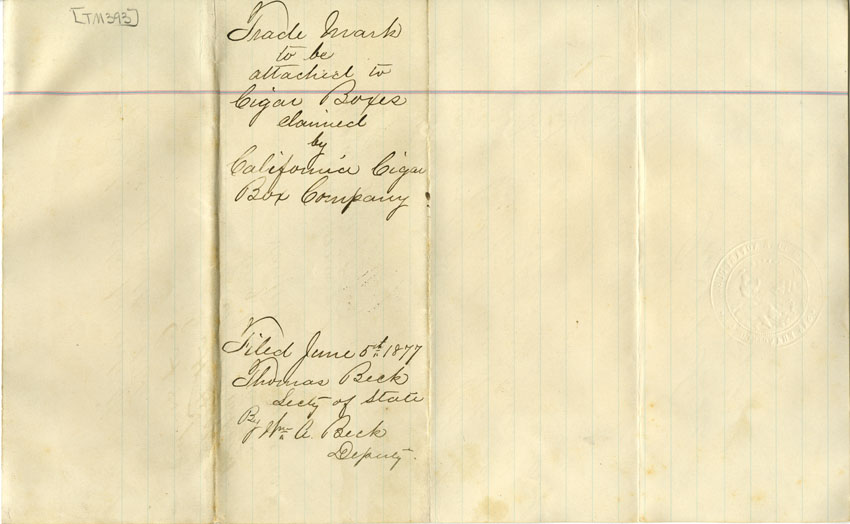 [TM393]
Trade Mark
to be
attached to
Cigar Boxes
claimed
by
California Cigar
Box Company
Filed June 5th 1877
Thomas Beck
Secty of State
By Wm A. Beck
Deputy.